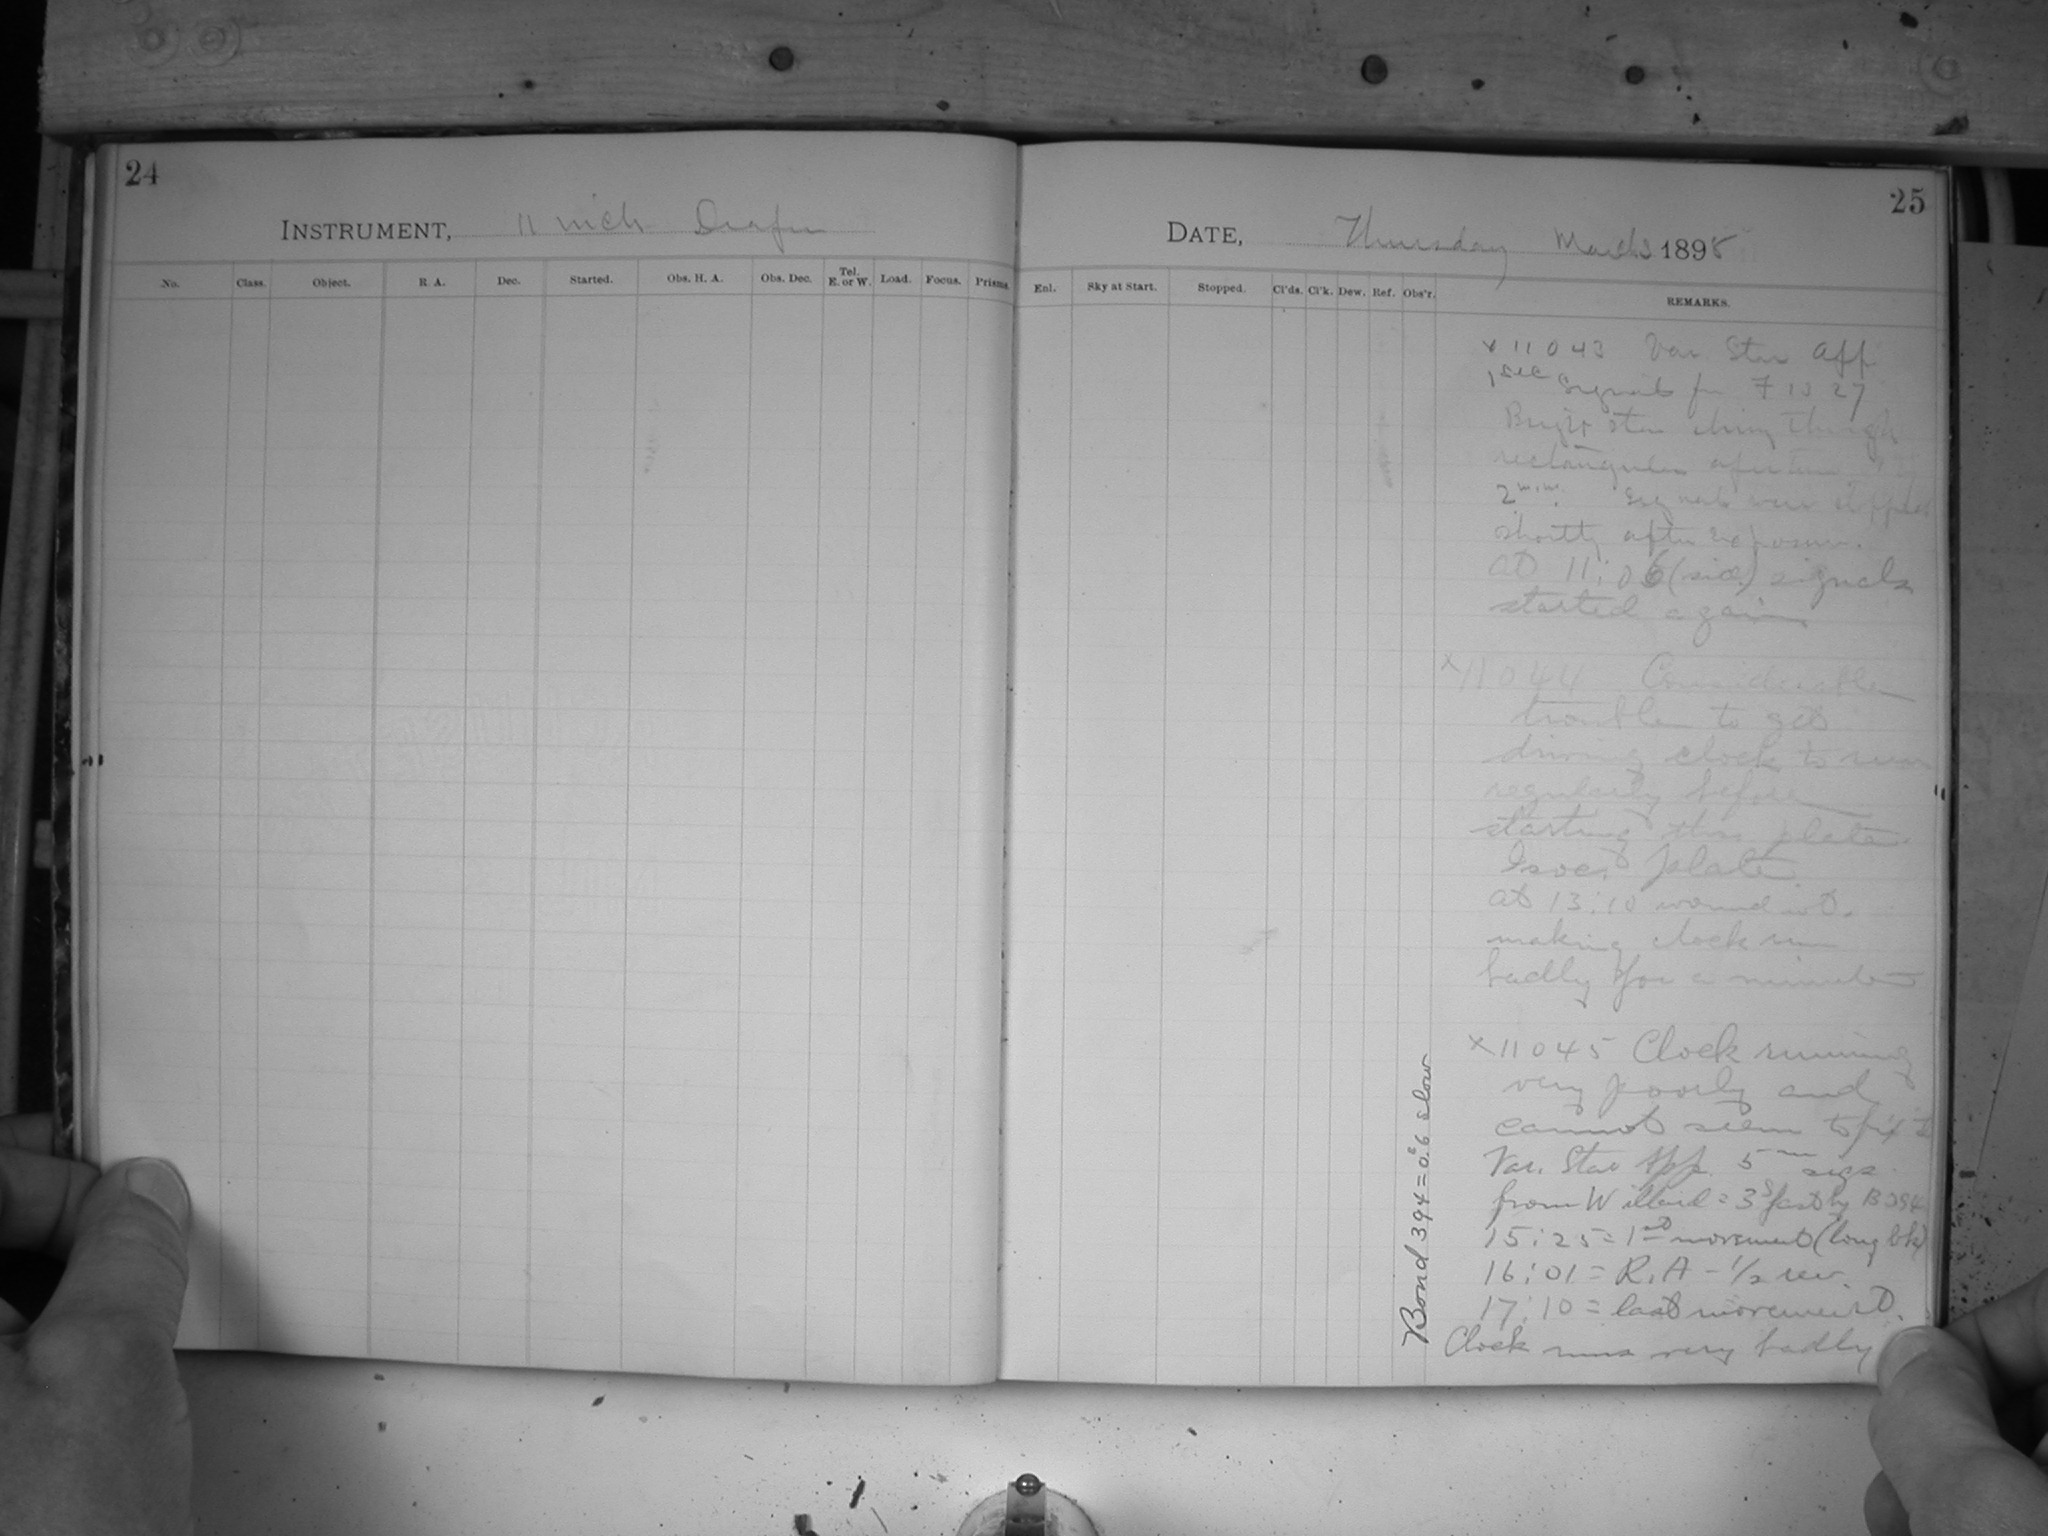 24
INSTRUMENT, 11 inch Draper
No. Class. Object. R. A. Dec. Started. Obs. H. A. Obs. Dec. Tel. E. or W. Load. Focus. Prisms.
25
DATE, Thursday March 1898
Enl. Sky at Start. Stopped. Cl'ds. Cl'k. Dew. Ref. Obs'r. REMARKS.
x 11043 Var Star App
1 sec Signals for
Bright star through
rectangular aperture
2 m.m. Signals were stopped
shortly after exposure.
at 11:06 (sid.) signals
started again
x 11044 Considerable
trouble to get
driving clock to run
regularly before
starting this plate
Isoc. plate
at 13:10 wound wt.
making clock run
badly for a minute
x 11045 Clock running
very poorly and
cannot seem to fix it
Var. Star App. 5 m sigs
from Willard = 3s fast by B 394
15:25 = 1st movement (long bk)
16:01 = R.A - 1/2 rev.
17:10 = last movement.
Clock runs very badly
Bond 394 = 0s.6 slow